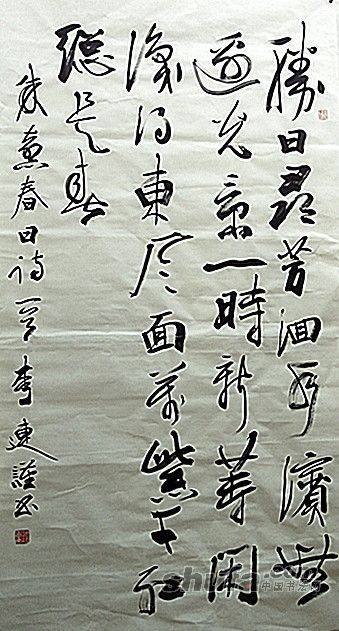 勝日尋芳泗水濱無
邊光景一時新等閑
識得東風面萬紫千紅
總是春
朱熹春日詩一首李連謹书